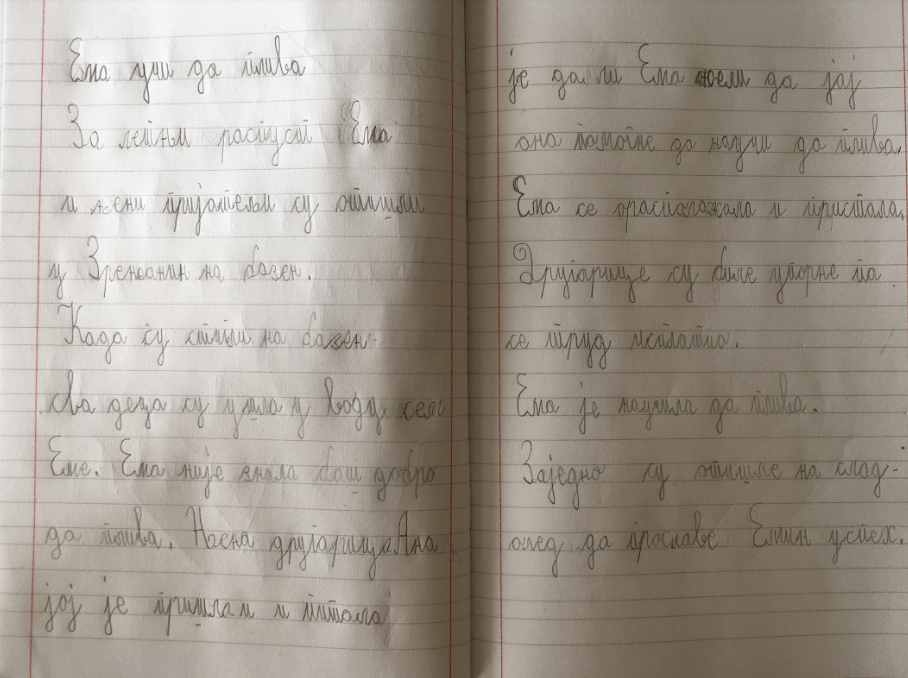 Ема учи да плива
За летњи распуст Ема
и њени пријатељи су отишли
у Зрењанин на базен.
Када су стигли на базен
сва деца су ушла у воду сем
Еме. Ема није знала баш добро
да плива. Њена другарица Ана
јој је пришла и и питала
је да ли Ема жели да јој
она помогне да научи да плива.
Ема се орасположила и пристала.
Другарице су биле упорне па
се труд исплатио.
Ема је научила да плива.
Заједно су отишле на слад-
олед да прославе Емин успех.